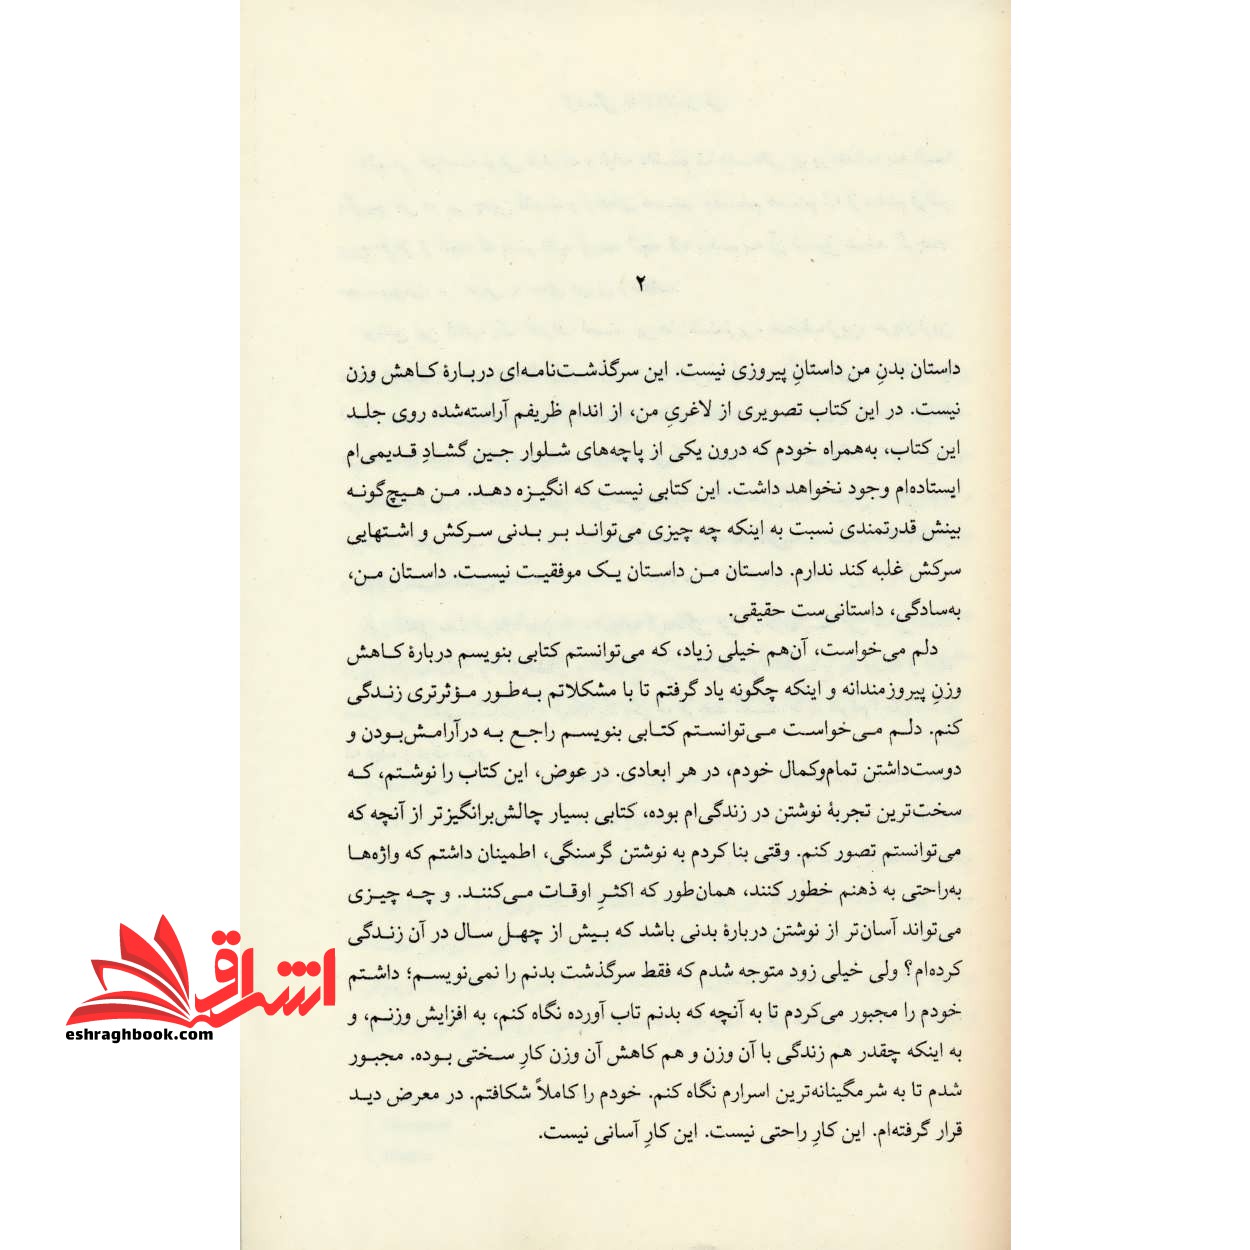 ۲
داستان بدنِ من داستانِ پیروزی نیست. این سرگذشت‌نامه‌ای دربارهٔ کاهش وزن
نیست. در این کتاب تصویری از لاغریِ من، از اندام ظریفم آراسته‌شده روی جلد
این کتاب، به‌همراه خودم که درون یکی از پاچه‌های شلوار جین گشادِ قدیمی‌ام
ایستاده‌ام وجود نخواهد داشت. این کتابی نیست که انگیزه دهد. من هیچ‌گونه
بینش قدرتمندی نسبت به اینکه چه چیزی می‌تواند بر بدنی سرکش و اشتهایی
سرکش غلبه کند ندارم. داستان من داستان یک موفقیت نیست. داستان من،
به‌سادگی، داستانی‌ست حقیقی.
دلم می‌خواست، آن‌هم خیلی زیاد، که می‌توانستم کتابی بنویسم دربارهٔ کاهش
وزنِ پیروزمندانه و اینکه چگونه یاد گرفتم تا با مشکلاتم به‌طور مؤثرتری زندگی
کنم. دلم می‌خواست می‌توانستم کتابی بنویسم راجع به درآرامش‌بودن و
دوست‌داشتن تمام‌وکمال خودم، در هر ابعادی. در عوض، این کتاب را نوشتم، که
سخت‌ترین تجربهٔ نوشتن در زندگی‌ام بوده، کتابی بسیار چالش‌برانگیزتر از آنچه که
می‌توانستم تصور کنم. وقتی بنا کردم به نوشتن گرسنگی، اطمینان داشتم که واژه‌ها
به‌راحتی به ذهنم خطور کنند، همان‌طور که اکثرِ اوقات می‌کنند. و چه چیزی
می‌تواند آسان‌تر از نوشتن دربارهٔ بدنی باشد که بیش از چهل سال در آن زندگی
کرده‌ام؟ ولی خیلی زود متوجه شدم که فقط سرگذشت بدنم را نمی‌نویسم؛ داشتم
خودم را مجبور می‌کردم تا به آنچه که بدنم تاب آورده نگاه کنم، به افزایش وزنم، و
به اینکه چقدر هم زندگی با آن وزن و هم کاهش آن وزن کارِ سختی بوده. مجبور
شدم تا به شرمگینانه‌ترین اسرارم نگاه کنم. خودم را کاملاً شکافتم. در معرض دید
قرار گرفته‌ام. این کارِ راحتی نیست. این کارِ آسانی نیست.
اشراق
eshraghbook.com